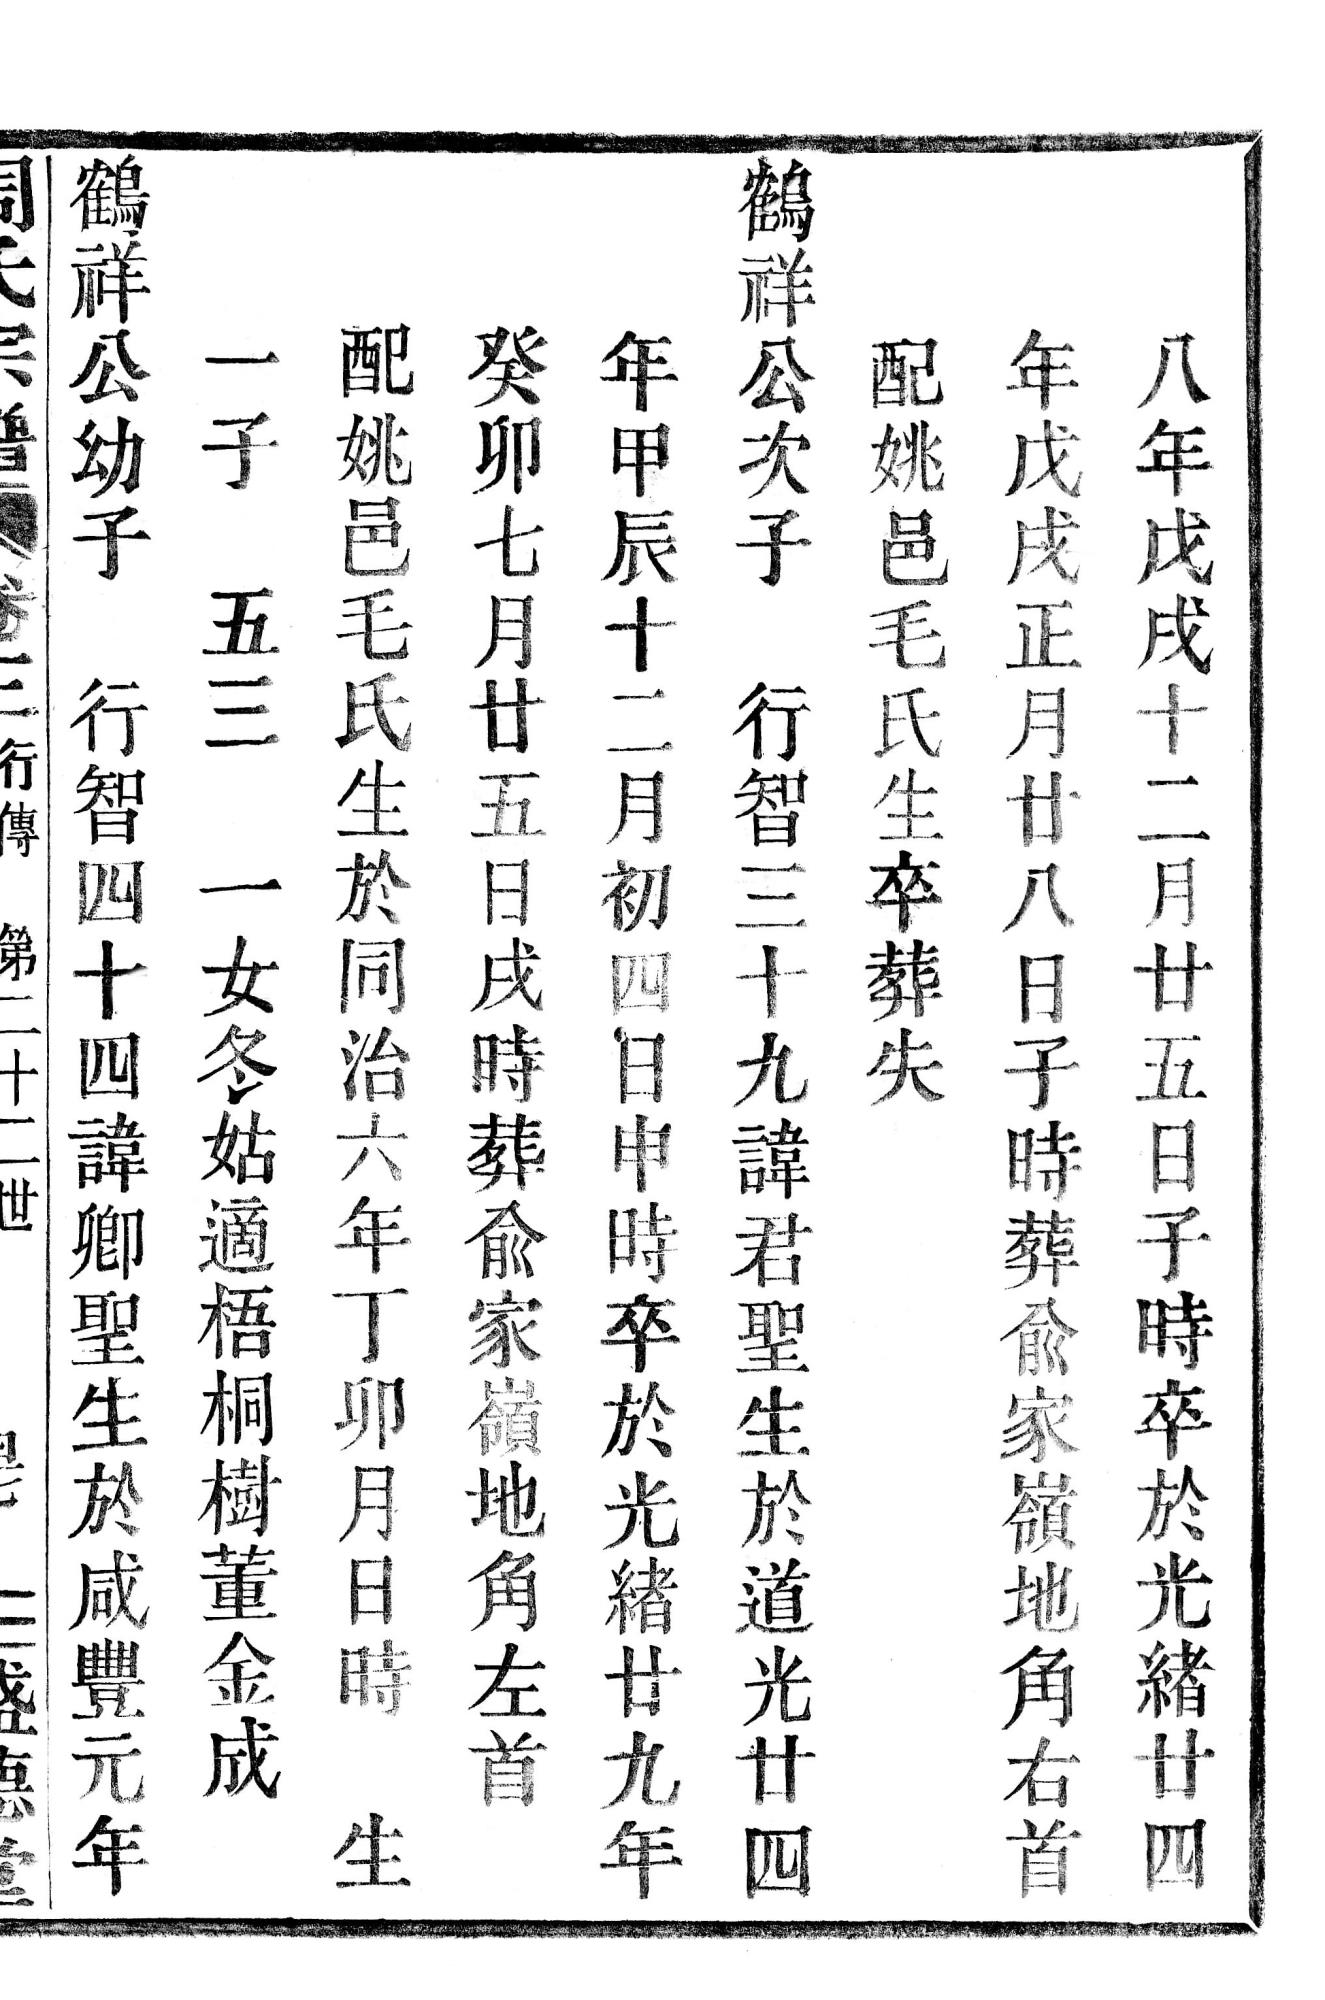 八年戊戌十二月廿五日子時卒於光緒廿四
年戊戌正月廿八日子時葬俞家嶺地角右首
配姚邑毛氏生卒葬失
鶴祥公次子　行智三十九諱君聖生於道光廿四
年甲辰十二月初四日申時卒於光緒廿九年
癸卯七月廿五日戌時葬俞家嶺地角左首
配姚邑毛氏生於同治六年丁卯月日時　生
一子　五三　一女冬姑適梧桐樹董金成
鶴祥公幼子　行智四十四諱卿聖生於咸豐元年
周氏宗譜　卷二行傳　第二十二世　盛德堂